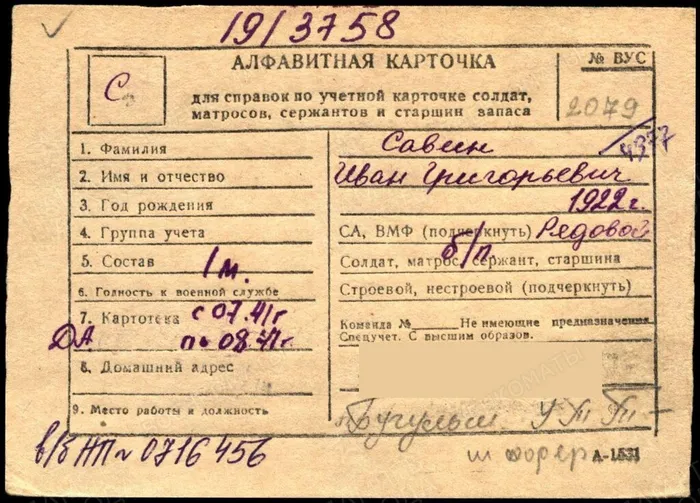 19/3758
АЛФАВИТНАЯ КАРТОЧКА
№ ВУС
С
для справок по учетной карточке солдат,
матросов, сержантов и старшин запаса
2079
4377
1. Фамилия Савин
2. Имя и отчество Иван Григорьевич
3. Год рождения 1922 г.
4. Группа учета СА, ВМФ (подчеркнуть) Рядовой
5. Состав 1 м. Солдат, матрос, сержант, старшина б/п
6. Годность к военной службе Строевой, нестроевой (подчеркнуть)
7. Картотека с 07.41 г Команда № Не имеющие предназначения
ДА по 08.41 г. Спецучет. С высшим образов.
8. Домашний адрес
9. Место работы и должность
в/б НП № 0716456
А-1531